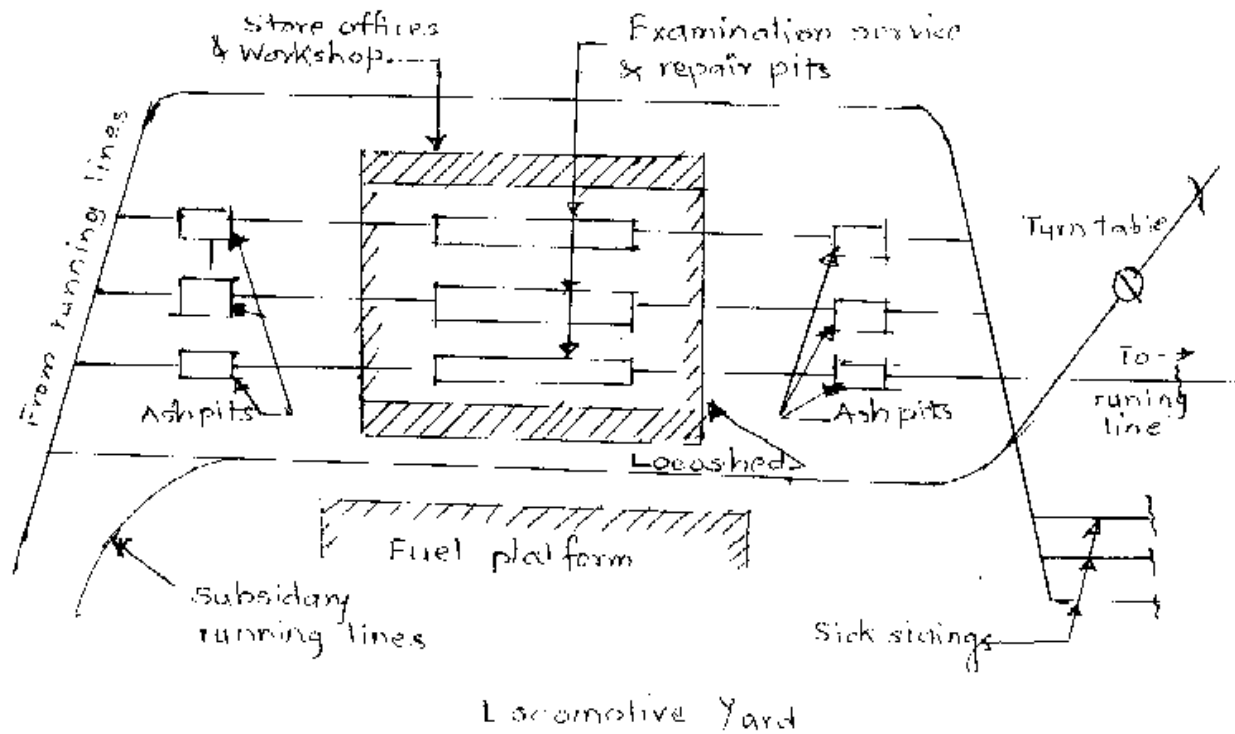 Store offices
& Workshop
Examination service
& repair pits
From running lines
Turntable
To
runing
line
Ashpits
Ashpits
Locoshed
Fuel platform
Subsidary
running lines
Sick sidings
Locomotive Yard